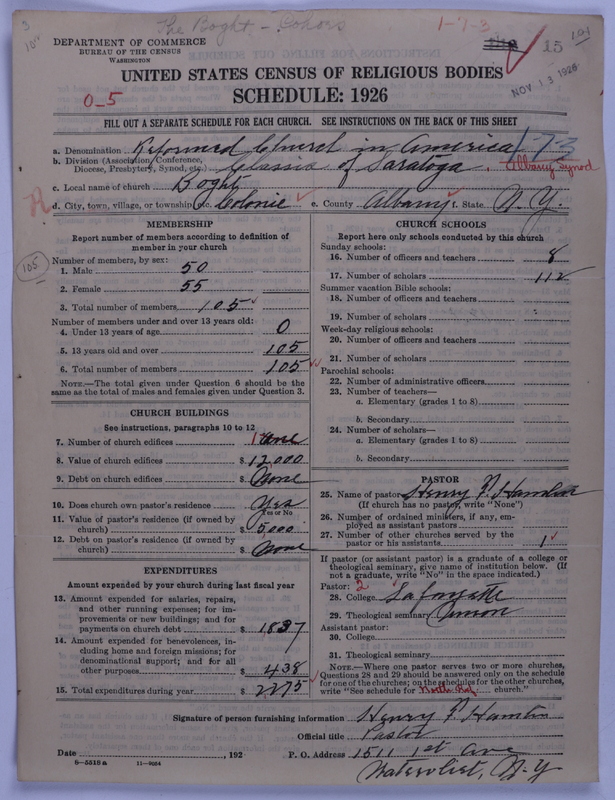 The Boght - Cohoes
1-7-3
15
101
DEPARTMENT OF COMMERCE
BUREAU OF THE CENSUS
WASHINGTON
NOV 13 1926
UNITED STATES CENSUS OF RELIGIOUS BODIES
0-5
SCHEDULE: 1926
FILL OUT A SEPARATE SCHEDULE FOR EACH CHURCH. SEE INSTRUCTIONS ON THE BACK OF THIS SHEET
a. Denomination Reformed Church in America 1-7-3
b. Division (Association, Conference, Diocese, Presbytery, Synod, etc.) Classis of Saratoga. Albany Synod
c. Local name of church Boght
d. City, town, village, or township, etc. Colonie e. County Albany f. State N. Y.
MEMBERSHIP
Report number of members according to definition of
member in your church
105
Number of members, by sex:
1. Male 50
2. Female 55
3. Total number of members 105
Number of members under and over 13 years old:
4. Under 13 years of age 0
5. 13 years old and over 105
6. Total number of members 105
NOTE.—The total given under Question 6 should be the
same as the total of males and females given under Question 3.
CHURCH BUILDINGS
See instructions, paragraphs 10 to 12
7. Number of church edifices 1 one
8. Value of church edifices $ 12,000
9. Debt on church edifices $ None
10. Does church own pastor's residence Yes
Yes or No
11. Value of pastor's residence (if owned by
church) $ 5,000
12. Debt on pastor's residence (if owned by
church) $ None
EXPENDITURES
Amount expended by your church during last fiscal year
13. Amount expended for salaries, repairs,
and other running expenses; for im-
provements or new buildings; and for
payments on church debt $ 1837
14. Amount expended for benevolences, in-
cluding home and foreign missions; for
denominational support; and for all
other purposes $ 438
15. Total expenditures during year $ 2275
CHURCH SCHOOLS
Report here only schools conducted by this church
Sunday schools:
16. Number of officers and teachers 8
17. Number of scholars 112
Summer vacation Bible schools:
18. Number of officers and teachers
19. Number of scholars
Week-day religious schools:
20. Number of officers and teachers
21. Number of scholars
Parochial schools:
22. Number of administrative officers
23. Number of teachers—
a. Elementary (grades 1 to 8)
b. Secondary
24. Number of scholars—
a. Elementary (grades 1 to 8)
b. Secondary
PASTOR
25. Name of pastor Henry P. Hamlin
(If church has no pastor, write "None")
26. Number of ordained ministers, if any, em-
ployed as assistant pastors
27. Number of other churches served by the
pastor or his assistants 1
If pastor (or assistant pastor) is a graduate of a college or
theological seminary, give name of institution below. (If
not a graduate, write "No" in the space indicated.)
Pastor: 2
28. College Lafayette
29. Theological seminary Union
Assistant pastor:
30. College
31. Theological seminary
NOTE.—Where one pastor serves two or more churches,
Questions 28 and 29 should be answered only on the schedule
for one of the churches; on the schedules for the other churches,
write "See schedule for North Ref. church."
Signature of person furnishing information Henry P. Hamlin
Official title Pastor
Date , 192 P. O. Address 1511 1st Ave
8-5518a 11-9064 Watervliet, N. Y.